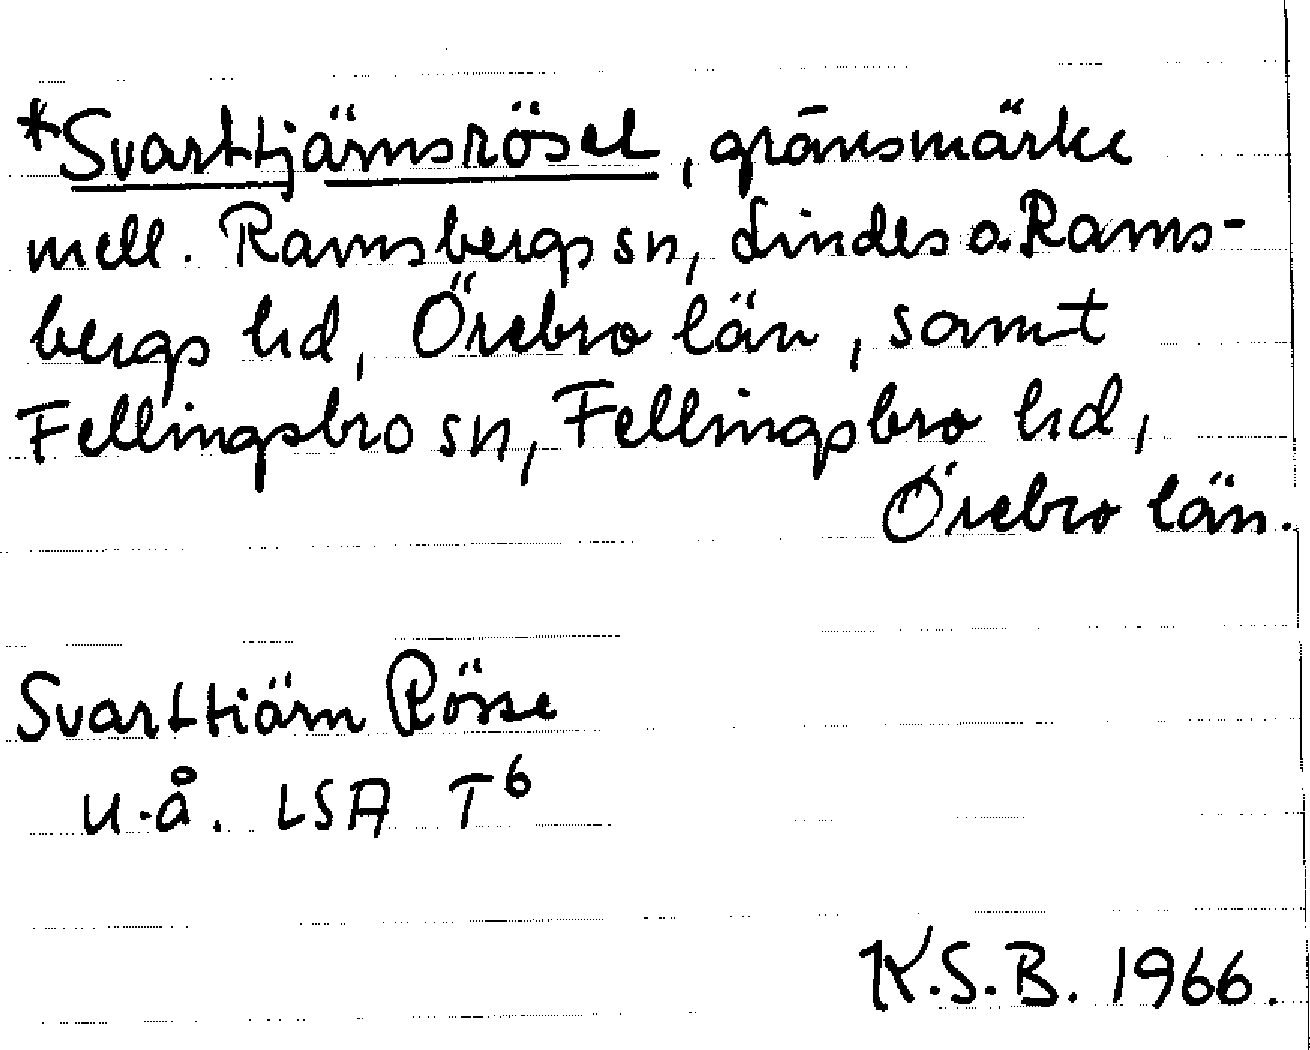 *Svarttjärnsröset, gränsmärke
mell. Ramsbergs sn, Lindes o. Rams-
bergs hd, Örebro län, samt
Fellingsbro sn, Fellingsbro hd,
Örebro län.
Svarttiärn Rösse
u.å. LSA T6
K.S.B. 1966.